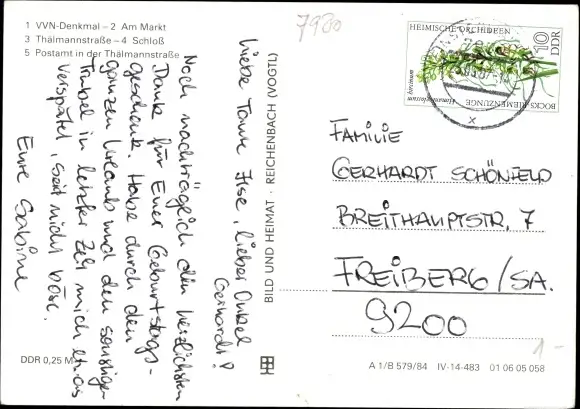 1 VVN-Denkmal – 2 Am Markt
3 Thälmannstraße – 4 Schloß
5 Postamt in der Thälmannstraße
7980
Liebe Tante Ilse, lieber Onkel
Gerhardt!
Noch nachträglich den herzlichsten
Dank für Euer Geburtstags-
geschenk. Habe durch den
ganzen Urlaub und den sonstigen
Trubel in letzter Zeit mich etwas
verspätet, seid nicht böse.
Eure Sabine
DDR 0,25 M
BILD UND HEIMAT · REICHENBACH (VOGTL)
HEIMISCHE ORCHIDEEN
10
DDR
BOCKS-RIEMENZUNGE
Himantoglossum hircinum
FAMILIE
GERHARDT SCHÖNFELD
BREITHAUPTSTR. 7
FREIBERG/SA.
9200
A 1/B 579/84 IV-14-483 01 06 05 058
1-